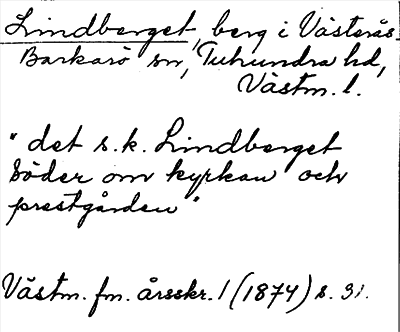 Lindberget, berg i Västerås-
Barkarö sn, Tuhundra hd,
Västm. l.
"det s.k. Lindberget
söder om kyrkan och
prestgården"
Västm. fm. årsskr. 1 (1874) s. 31.